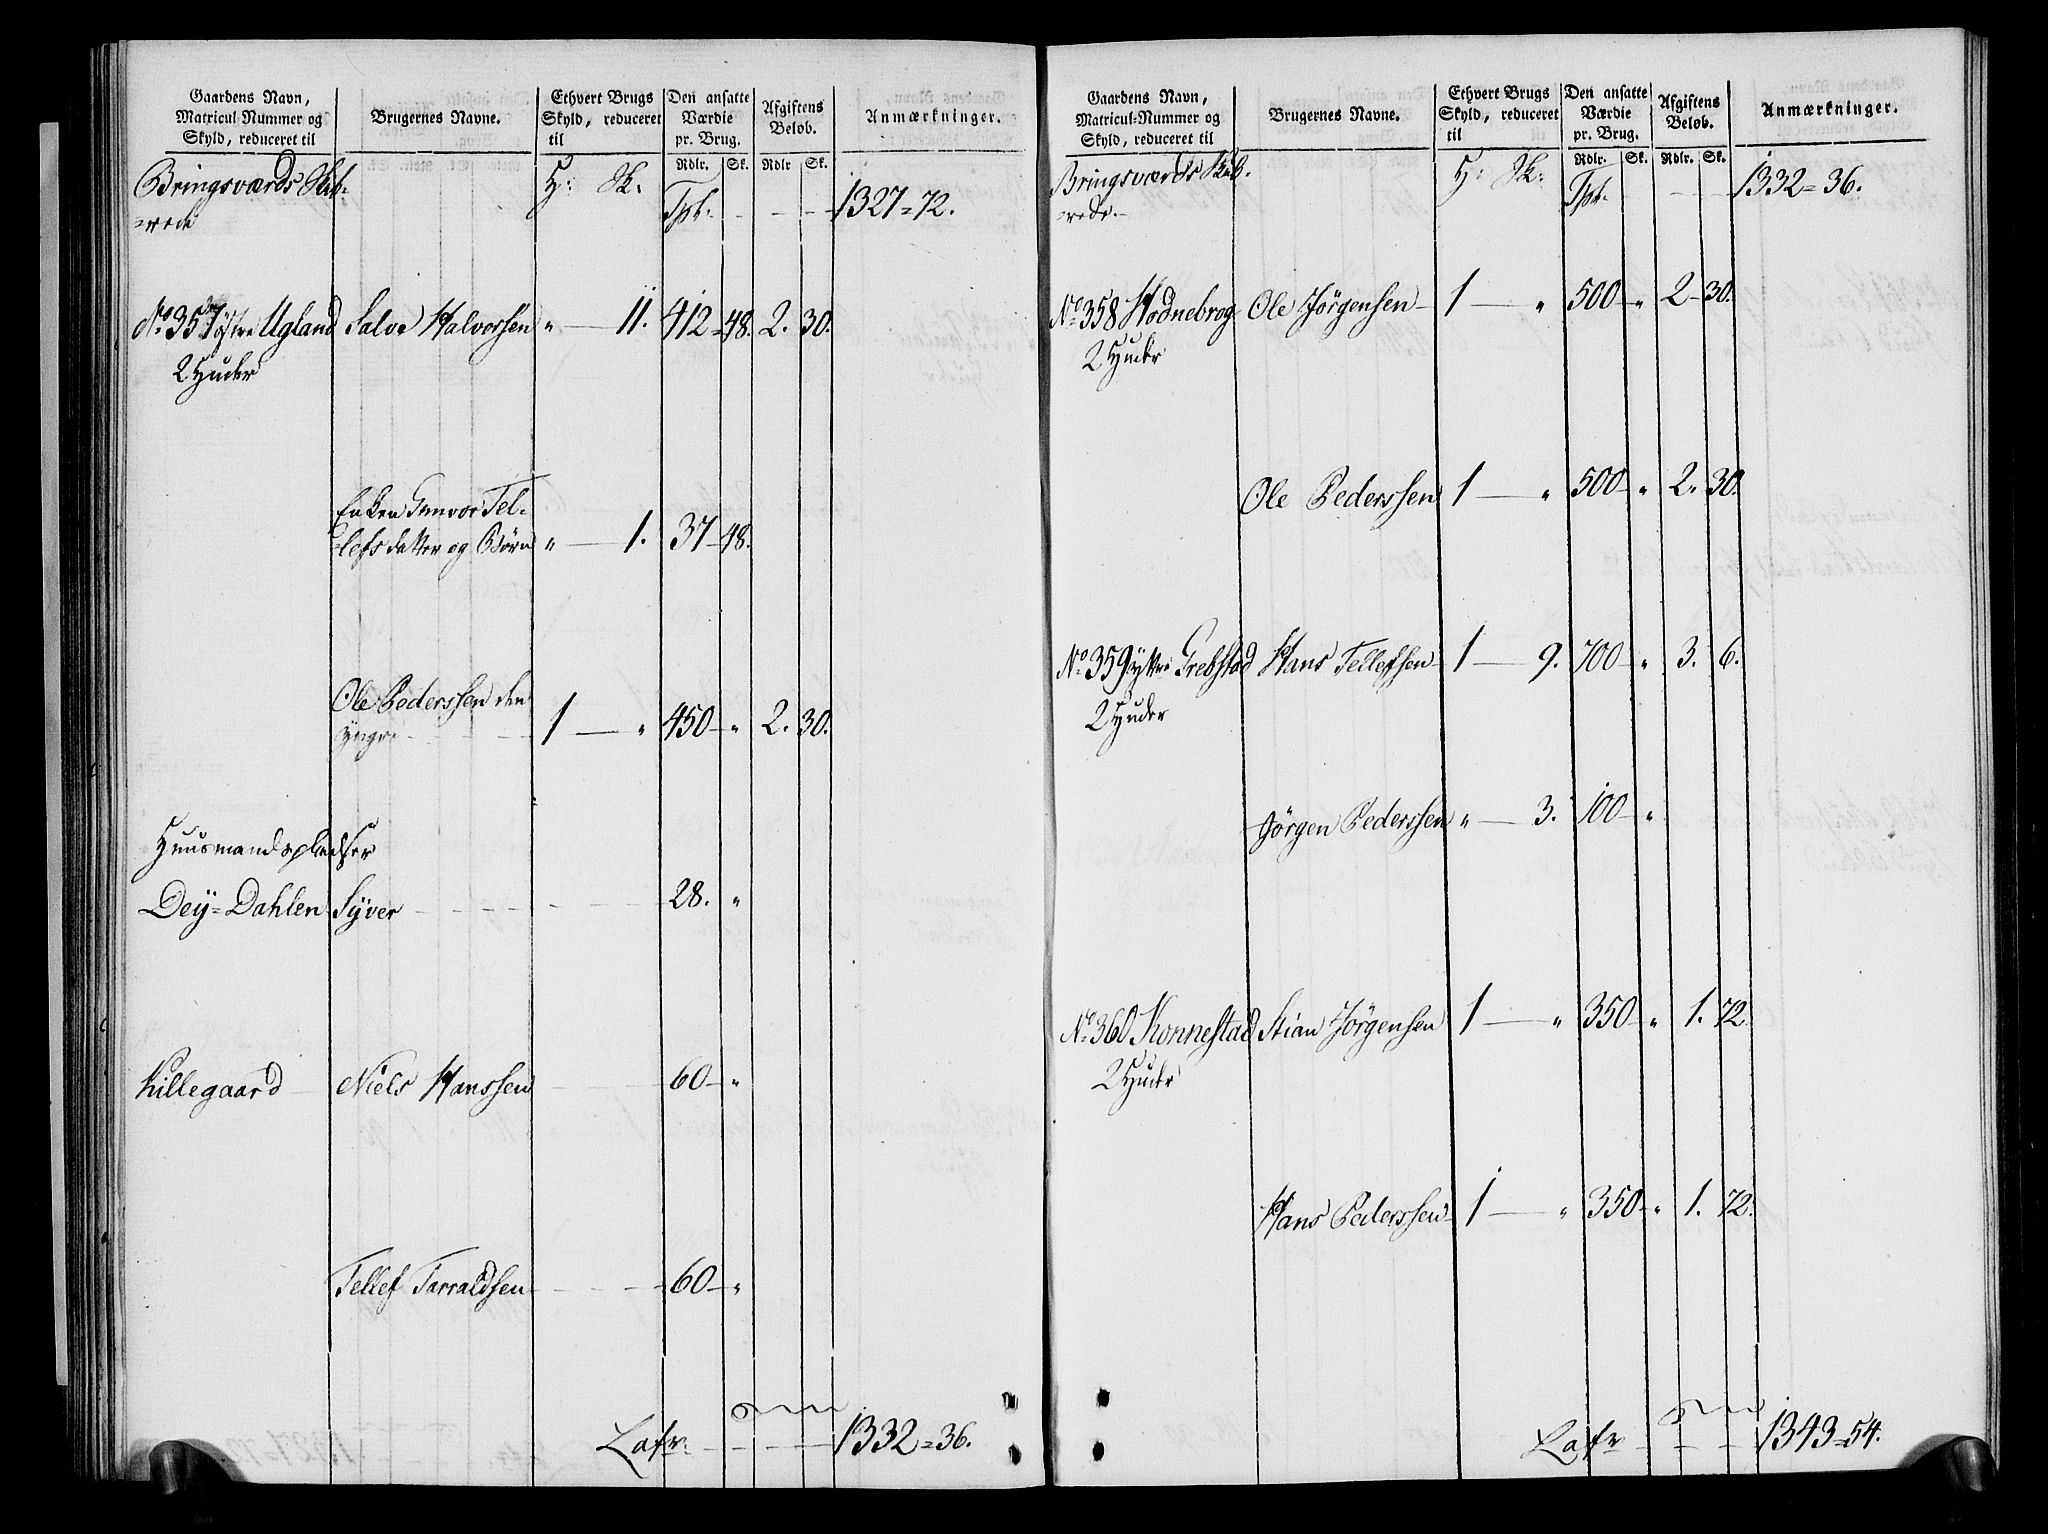 Gaardens Navn, Matricul-Nummer og Skyld, reduceret til | Brugernes Navne. | Ethvert Brugs Skyld, reduceret til | Den ansatte Værdie pr. Brug. | Afgiftens Beløb. | Anmærkninger.
Rdlr. Sk. Rdlr Sk.
Bringsværds Skib- H: Sk:
=rede Tpt: - - - 1327=72.
No 357 østre Ugland Salve Halvorsen " — 11. 412=48. 2. 30.
2 Huder
Enken Gunvor Tel-
lefsdatter og Børn " — 1. 37-48.
Ole Pederssen den
yngre 1 — " 450 - " 2. 30.
Huusmandspladser
Dey=Dahlen Syver - - - 28. "
Killegaard Niels Hanssen 60 - "
Tellef Tarraldsen - - - 60 - "
Latr: - - - 1332=36.
Gaardens Navn, Matricul-Nummer og Skyld, reduceret til | Brugernes Navne. | Ethvert Brugs Skyld, reduceret til | Den ansatte Værdie pr. Brug. | Afgiftens Beløb. | Anmærkninger.
Rdlr. Sk. Rdlr. Sk.
Bringsværds Skib- H: Sk:
=rede.- Tpt. - - - 1332=36.
No 358 Hodnebrog Ole Jørgensen 1 — " 500 - " 2-30.
2 Huder
Ole Pederssen 1 — " 500 - " 2. 30.
No 359 yttre Grebstad Hans Tellefsen 1 — 9. 700 - " 3. 6.
2 Huder
Jørgen Pederssen " — 3. 100 - "
No 360 Konnestad Stian Jørgensen 1 — " 350 - " 1. 72
2 Huder
Hans Pederssen 1 — " 350 - " 1. 72.
Latr - - - 1343=54.